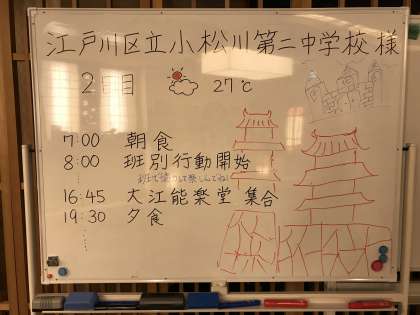 江戸川区立小松川第二中学校 様
2日目 27℃
7:00 朝食
8:00 班別行動開始
16:45 大江能楽堂 集合
19:30 夕食